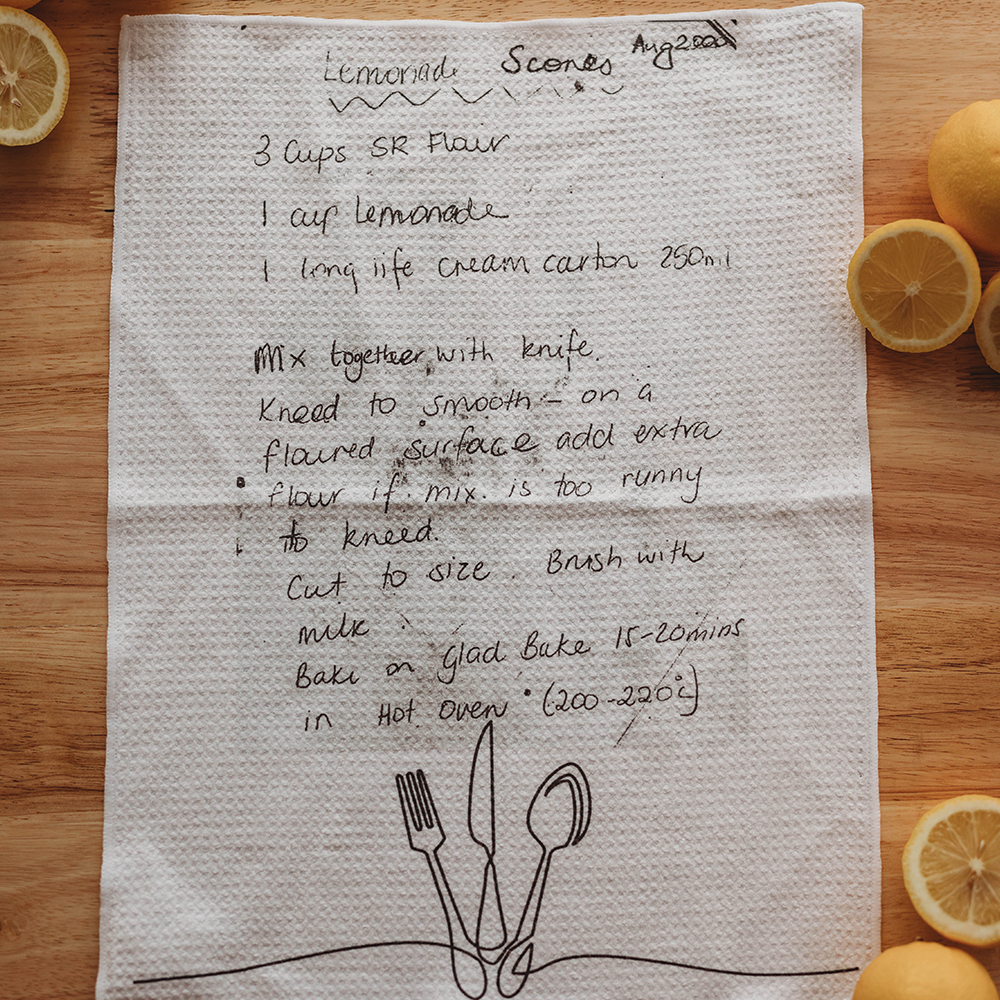 Lemonade Scones Aug 2000
3 Cups SR Flour
1 cup Lemonade
1 long life cream carton 250ml
Mix together with knife.
Kneed to smooth - on a
floured surface add extra
flour if mix is too runny
to kneed.
Cut to size. Brush with
milk.
Bake on Glad Bake 15-20mins
in Hot Oven (200-220°c)